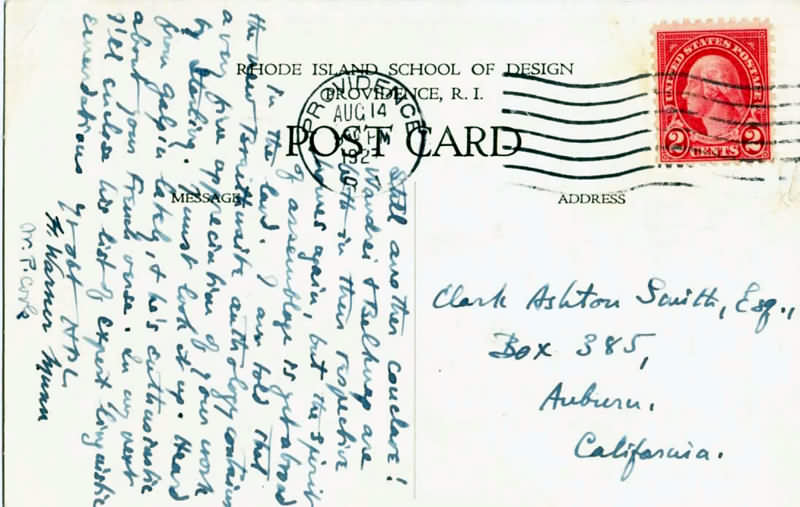 RHODE ISLAND SCHOOL OF DESIGN
PROVIDENCE, R. I.
POST CARD
MESSAGE
ADDRESS
PROVIDENCE
AUG 14
UNITED STATES POSTAGE
2 CENTS 2
Still another conclave!
Wandrei & Belknap are
with in their respective
homes again, but the spirit
of assemblage is yet abroad
in the land. I am told that
the new anthology contains
a very fine appreciation of your work
by Sterling. I must look it up. Heard
from Galpin lately, & he's enthusiastic
about your French verse. In my next
I'll enclose his list of expert linguistic
emendations
Yr obt HPL
H. Warner Munn
W. P. Cook
Clark Ashton Smith, Esq.,
Box 385,
Auburn,
California.